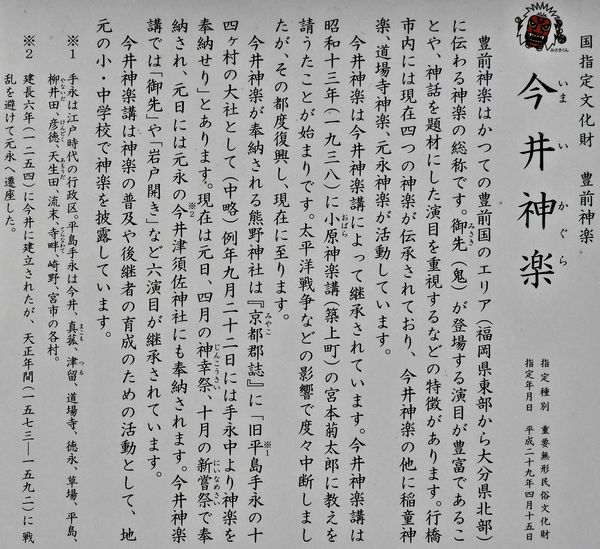 国指定文化財 豊前神楽
今井神楽
いまいかぐら
みさきくん
指定種別 重要無形民俗文化財
指定年月日 平成二十九年四月十五日
豊前神楽はかつての豊前国のエリア（福岡県東部から大分県北部）
に伝わる神楽の総称です。御先（鬼）が登場する演目が豊富であるこ
とや、神話を題材にした演目を重視するなどの特徴があります。行橋
市内には現在四つの神楽が伝承されており、今井神楽の他に稲童神
楽、道場寺神楽、元永神楽が活動しています。
今井神楽は今井神楽講によって継承されています。今井神楽講は
昭和十三年（一九三八）に小原神楽講（築上町）の宮本菊太郎に教えを
請うたことが始まりです。太平洋戦争などの影響で度々中断しまし
たが、その都度復興し、現在に至ります。
今井神楽が奉納される熊野神社は『京都郡誌』に「旧平島手永※1の十
四ヶ村の大社として（中略）例年九月二十二日には手永中より神楽を
奉納せり」とあります。現在は元日、四月の神幸祭、十月の新嘗祭で奉
納され、元日には元永の今井津須佐神社※2にも奉納されます。今井神楽
講では「御先」や「岩戸開き」など六演目が継承されています。
今井神楽講は神楽の普及や後継者の育成のための活動として、地
元の小・中学校で神楽を披露しています。
※1 手永は江戸時代の行政区。平島手永は今井、真菰、津留、道場寺、徳永、草場、平島、
柳井田、彦徳、天生田、流末、寺畔、崎野、宮市の各村。
※2 建長六年（一二五四）に今井に建立されたが、天正年間（一五七三―一五九二）に戦
乱を避けて元永へ遷座した。